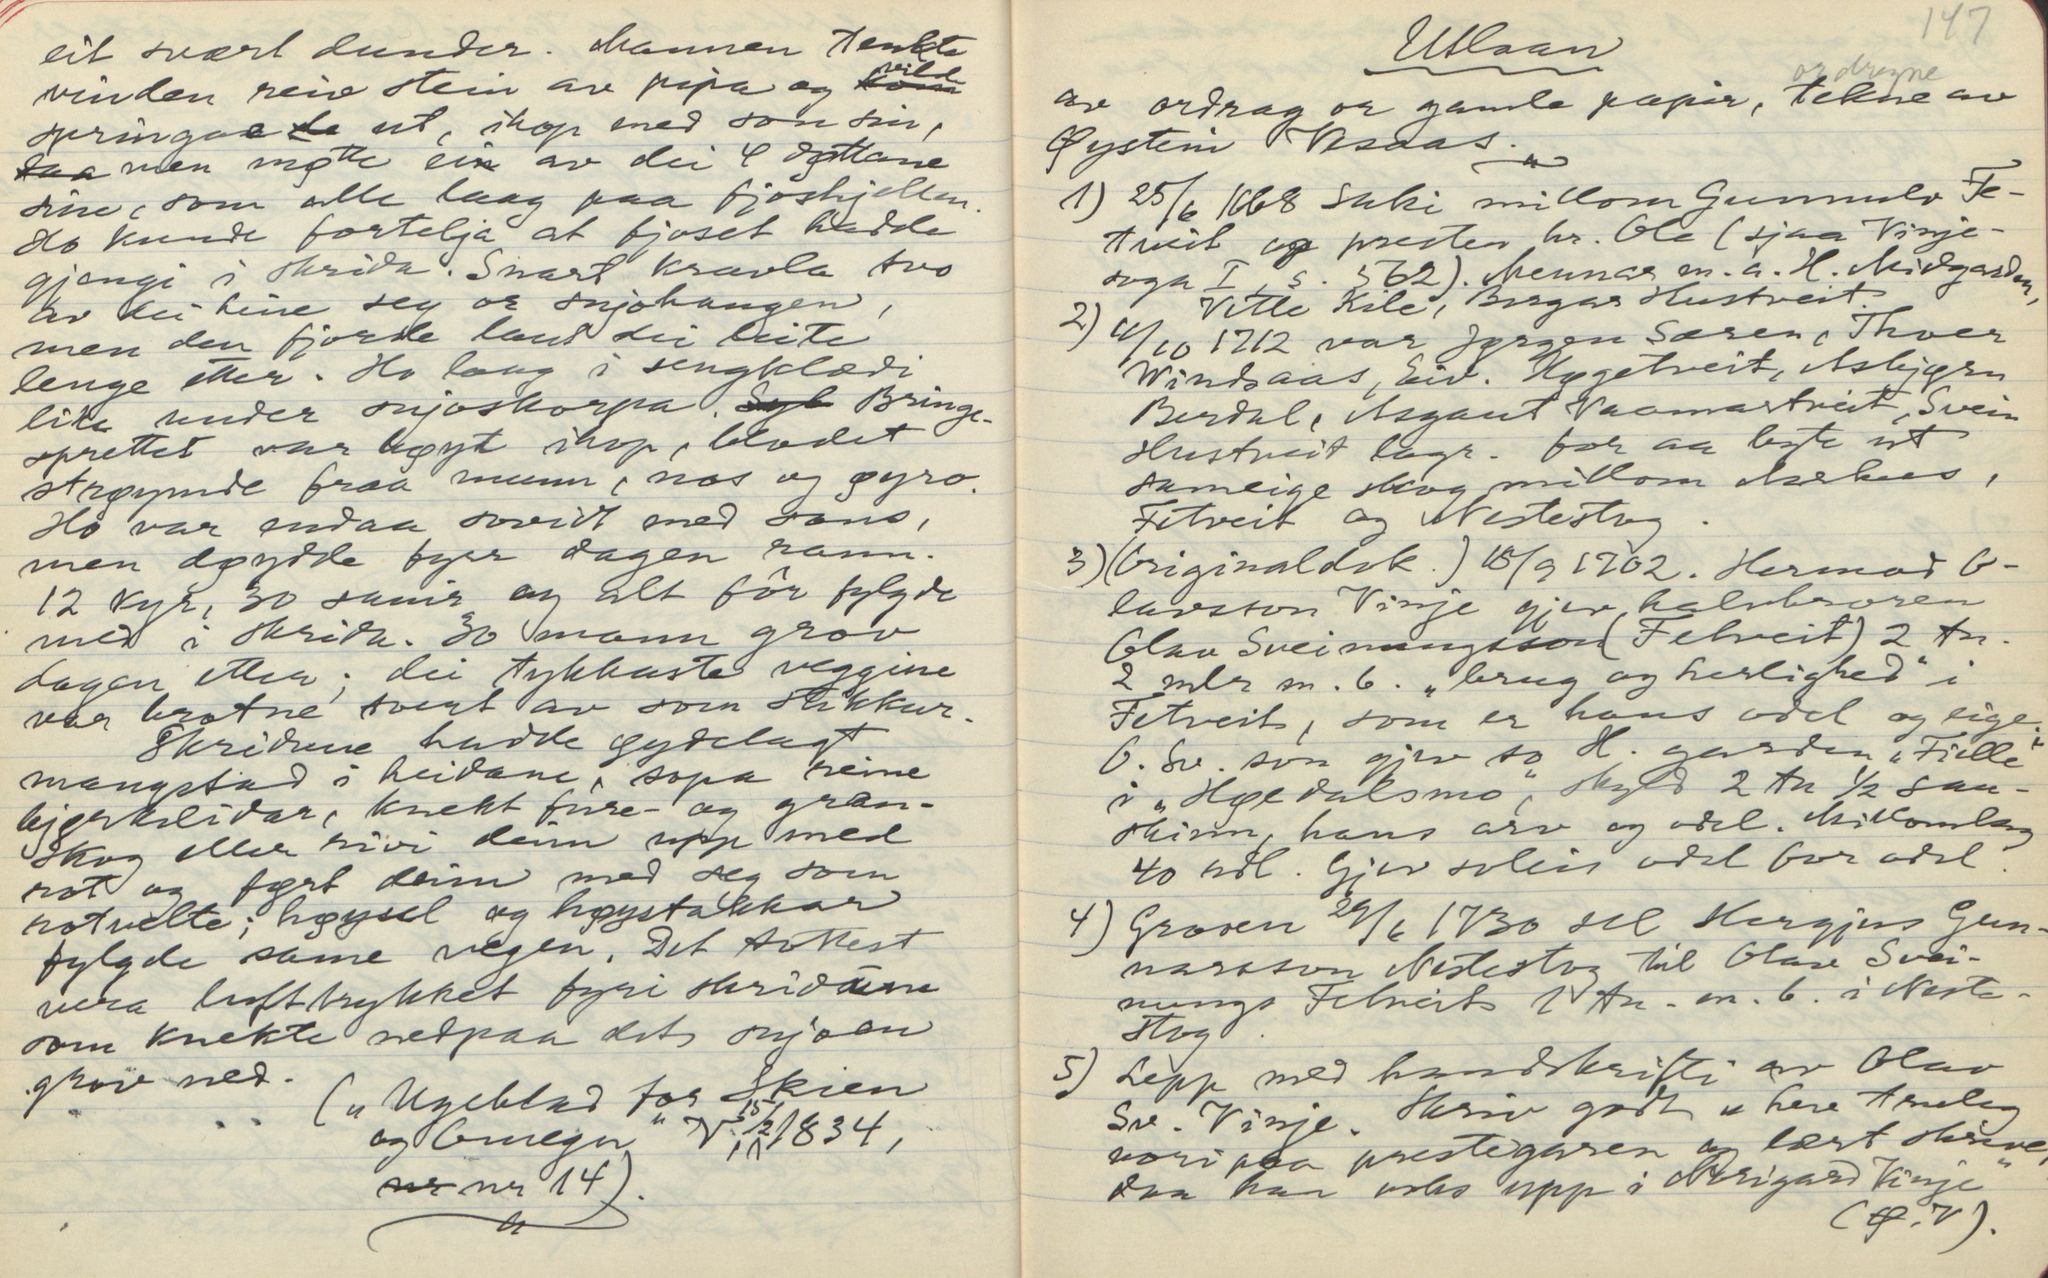 eit svært dunder. Mannen tenkte
vinden reiv stein av pipa og vilde
springa ut, ihop med son sin,
men møtte ein av dei 4 døttane
sine, som alle laag paa fjoshjellen.
Ho kunde fortelja at fjoset hadde
gjengi i skrida. Snart kravla tvo
av dei hine seg or snjohaugen,
men den fjorde laut dei leite
lenge etter. Ho laag i sengklædi
lik under snjoskorpa. Bringe-
sprettet var bøygt ihop, blodet
strøymde fraa munn, nos og øyro.
Ho var endaa sovidt med sans,
men døydde fyrr dagen rann.
12 kyr, 30 sauir og alt fôr fylgde
med i skrida. 30 mann grov
dagen etter; dei tykkaste veggine
var brotne tvert av som stikkur.
Skridune hadde øydelagt
mangstad i heidane, sopa reine
bjørkelidar, knekt fure- og gran-
skog eller rivi deim upp med
rot og ført deim med seg som
rotvelte; høysel og høystakkar
fylgde same vegen. Det tottest
vera lufttrykket fyri skridune
som knekte nedpaa dit snjoen
grov ned.
("Ugeblad for Skien
og Omegn" V 15/2 1834,
nr 14).
147
Utlaan
ordregne
av ordrag or gamle papir, tekne av
Øystein Vesaas.
1) 25/6 1668 Saki millom Gunnulv Fe-
tveit og presten hr. Ole (sjaa Vinje-
soga I, s. 562). Mennar m. a. H. Midgarden,
Vetle Kile, Birgar Hustveit.
2) 4/10 1712 var Jørgen Søren, Thoer
Windsaas, Eiv. Høgetveit, Asbjørn
Berdal, Asgaut Vaamartveit, Svein
Hustveit lagr. for aa byte ut
sameige skog millom
Fetveit og Nestestog.
3) (Originaldok.) 18/9 1702. Hermod O-
lavsson Vinje gjev halvbroren
Olav Sveinungsson (Fetveit) 2 tn.
2 mlr m. b. "brug og herlighed" i
Fetveit, som er hans odel og eige.
O. Sv. son gjev so H. garden "Fielle"
i "Høedalsmo", skyld 2 tn ½ sau-
skinn, hans arv og odel. Millomlag
40 rdl. Gjev soleis odel for odel.
4) Groven 29/6 1730 sel Hergjus Gun-
narsson Nestestog til Olav Svei-
nungs Fetveit 1 tn. m. b. i Neste-
stog.
5) Lepp med handskrifti av Olav
Sv. Vinje. Skriv godt "heve truleg
vori paa prestegaren og lært skrive,
daa han voks upp i Norigard Vinje"
(Ø. V).